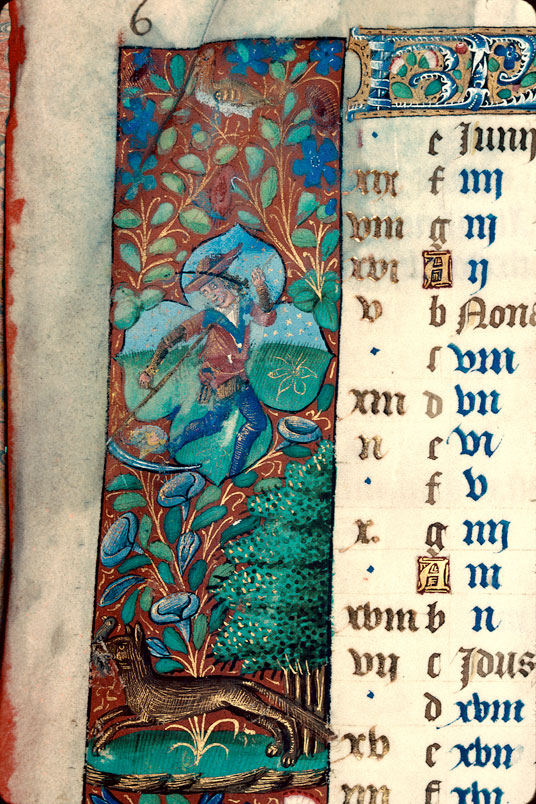 6
KL
· e Junij
xix f iiij
viii g iij
xvi A ij
v b Nona
· c viii
xiii d vii
ii e vi
· f v
x. g iiij
· A iii
xviii b ii
vii c Idus
· d xviii
xv e xvii
iiii f xvi